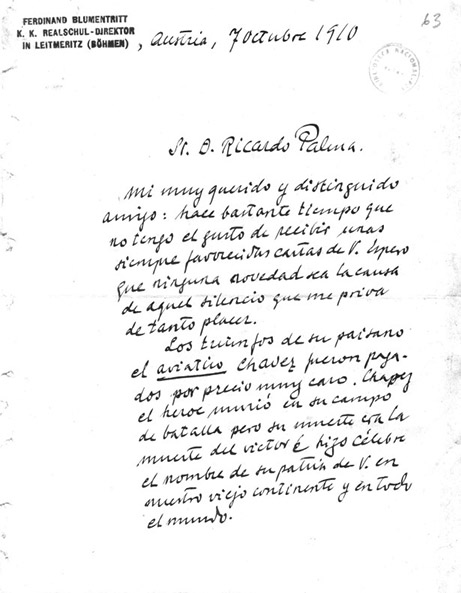 FERDINAND BLUMENTRITT
K. K. REALSCHUL-DIREKTOR
IN LEITMERITZ (BÖHMEN)
, Austria, 7 octubre 1910
63
BIBLIOTECA NACIONAL
Sr. D. Ricardo Palma.
Mi muy querido y distinguido
amigo: hace bastante tiempo que
no tengo el gusto de recibir unas
siempre favorecidas cartas de V. Espero
que ninguna novedad sea la causa
de aquel silencio que me priva
de tanto placer.
Los triunfos de su paisano
el aviatico Chavez fueron paga-
dos por precio muy caro. Chavez
el heroe murió en su campo
de batalla pero su muerte era la
muerte del victor é hizo célebre
el nombre de su patria de V. en
nuestro viejo continente y en todo
el mundo.